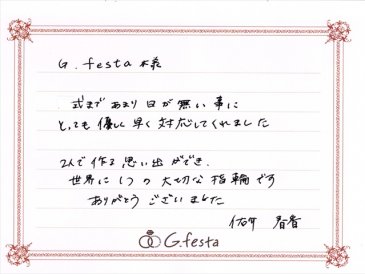 G.festa 様
式まであまり日が無い事に
とっても優しく早く対応してくれました
2人で作る思い出ができ、
世界に1つの大切な指輪です
ありがとうございました
G.festa